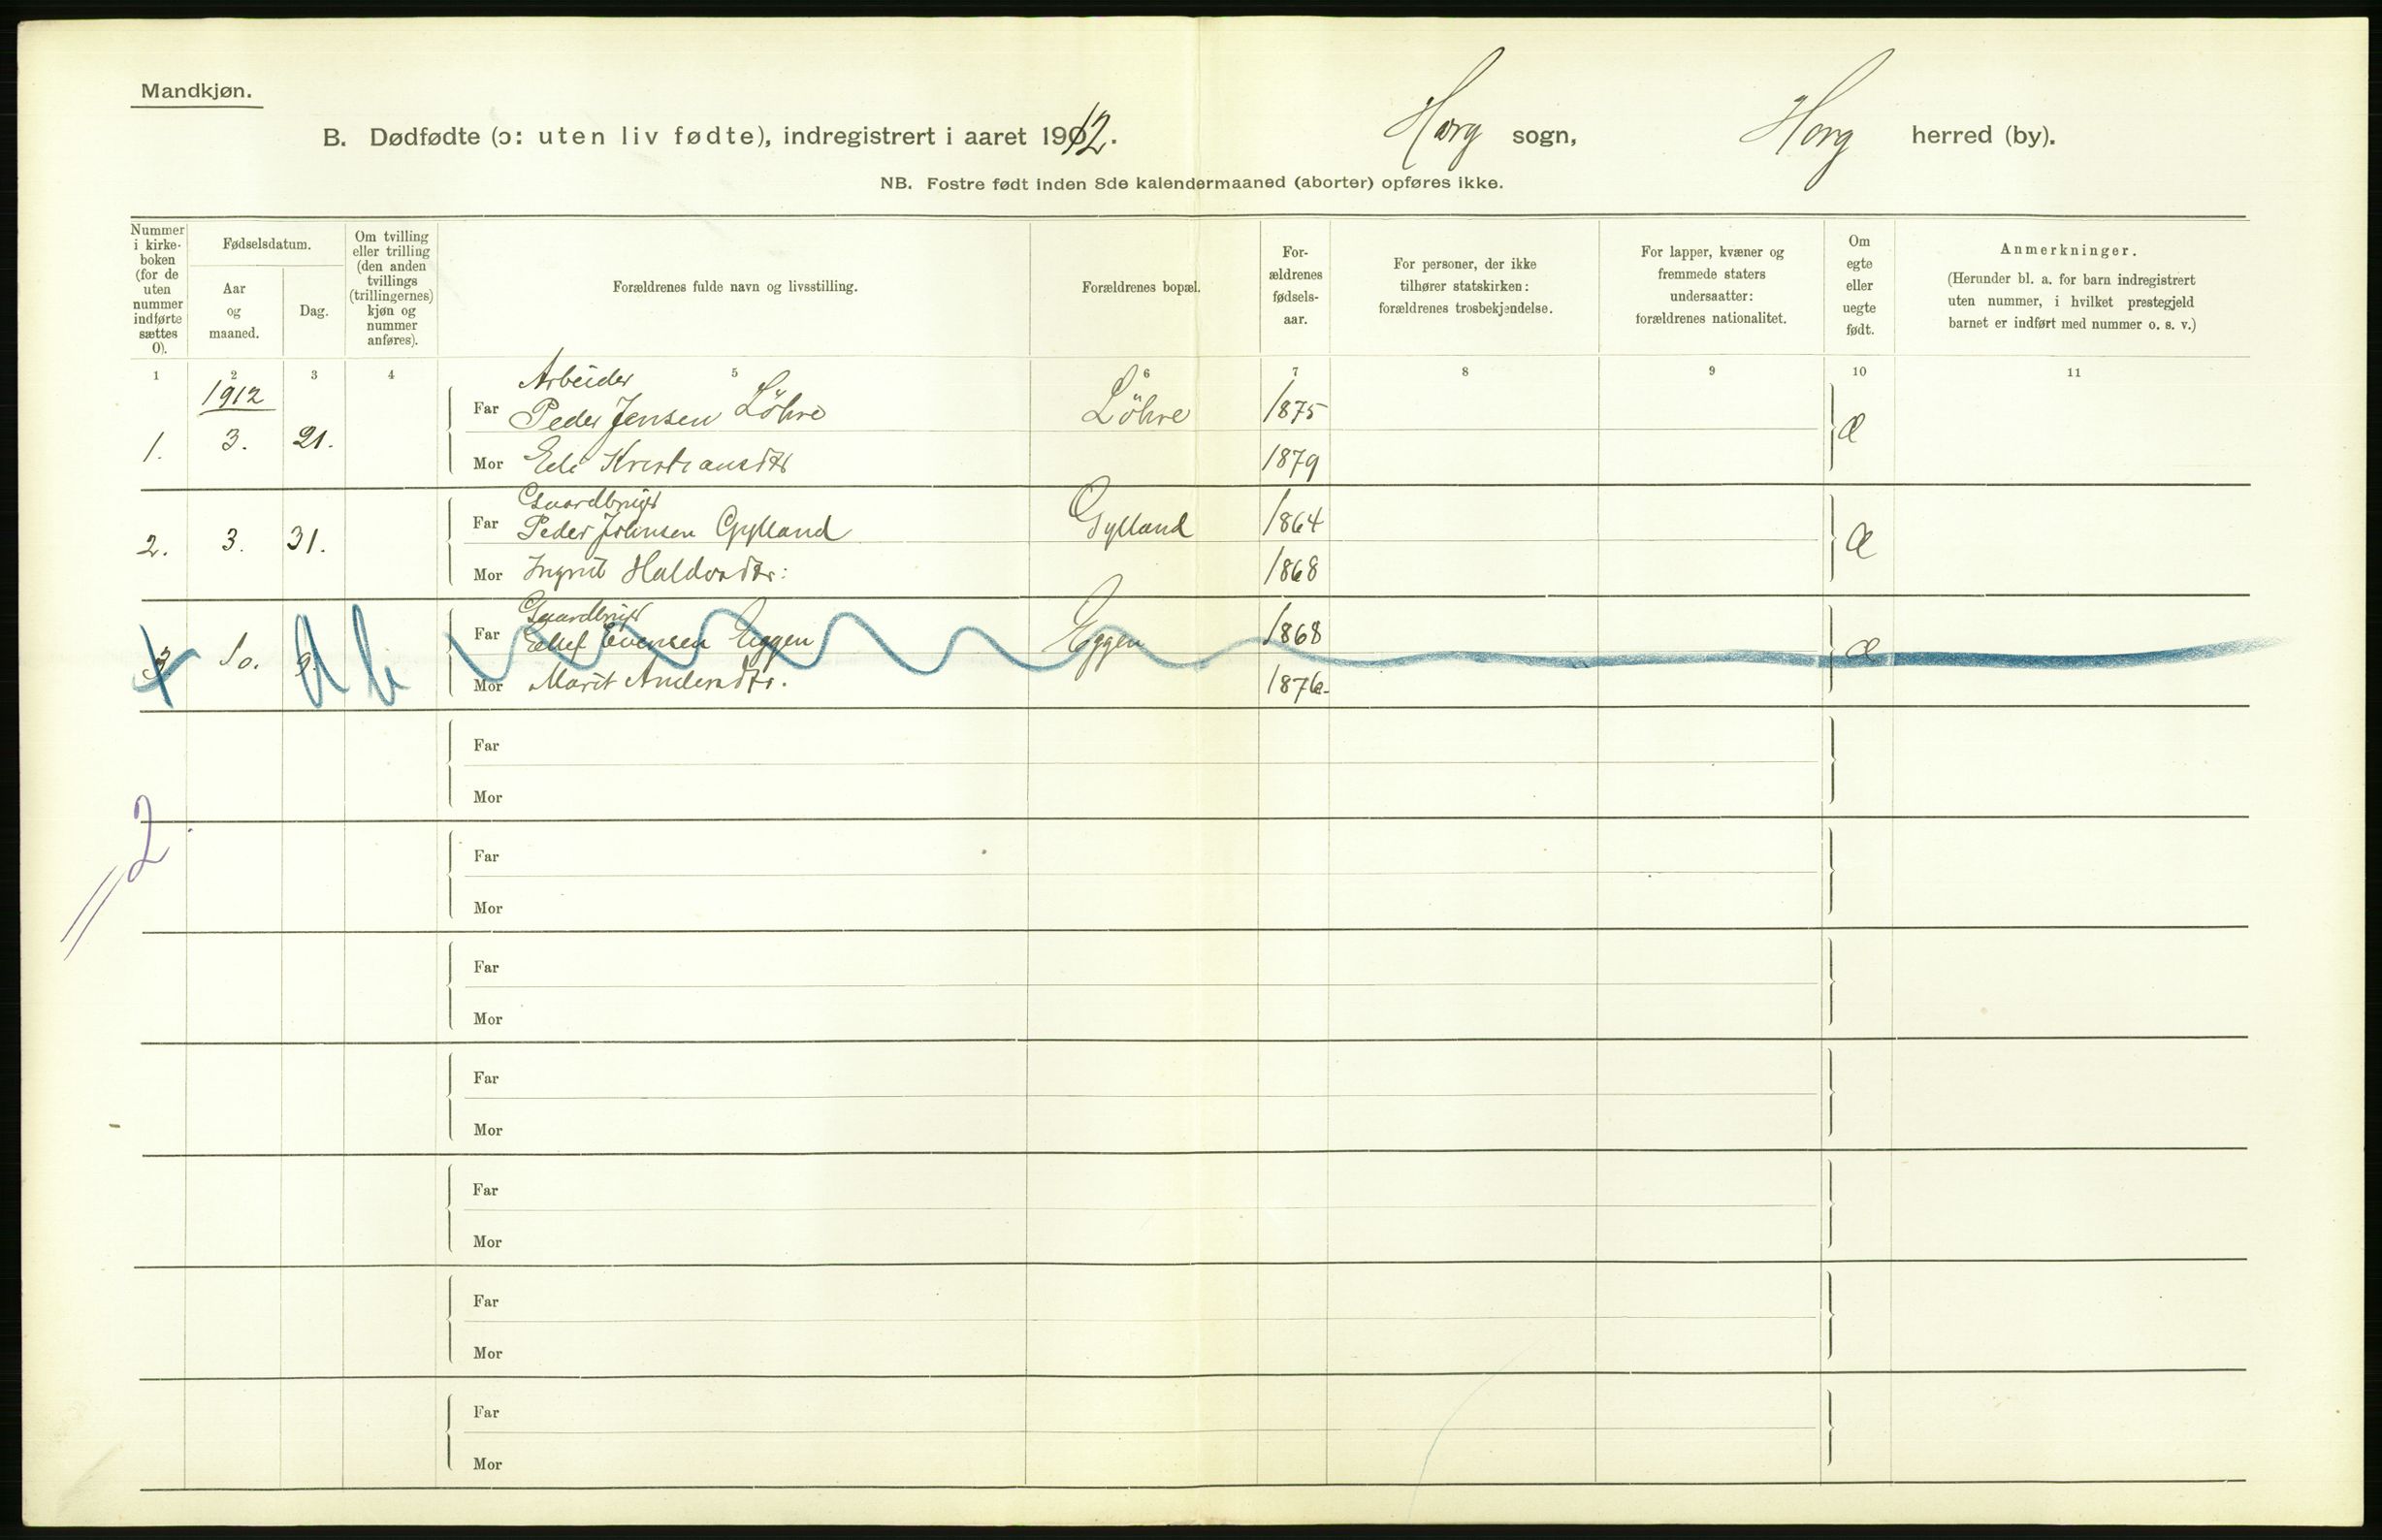 Mandkjøn.
B. Dødfødte (ɔ: uten liv fødte), indregistrert i aaret 1912. Horg sogn, Horg herred (by).
NB. Fostre født inden 8de kalendermaaned (aborter) opføres ikke.
Nummer i kirke-boken (for de uten nummer indførte sættes 0).
Fødselsdatum.
Aar og maaned.
Dag.
Om tvilling eller trilling (den anden tvillings (trillingernes) kjøn og nummer anføres).
Forældrenes fulde navn og livsstilling.
Forældrenes bopæl.
For-ældrenes fødsels-aar.
For personer, der ikke tilhører statskirken: forældrenes trosbekjendelse.
For lapper, kvæner og fremmede staters undersaatter: forældrenes nationalitet.
Om egte eller uegte født.
Anmerkninger.
(Herunder bl. a. for barn indregistrert uten nummer, i hvilket prestegjeld barnet er indført med nummer o. s. v.)
1 2 3 4 5 6 7 8 9 10 11
1912
Arbeider
1. 3. 21. Far Peder Jensen Löhre Löhre 1875 Æ
Mor Kristiansdtr 1879
Gaardbruger
2. 3. 31. Far Peder Johnsen Gylland Gylland 1864 Æ
Mor Ingrid Haldordtr: 1868
Gaardbruger
3 10. 9. Far Evensen Eggen Eggen 1868 Æ
Mor Marit Andersdtr. 1876.
Far
Mor
2
Far
Mor
Far
Mor
Far
Mor
Far
Mor
Far
Mor
Far
Mor